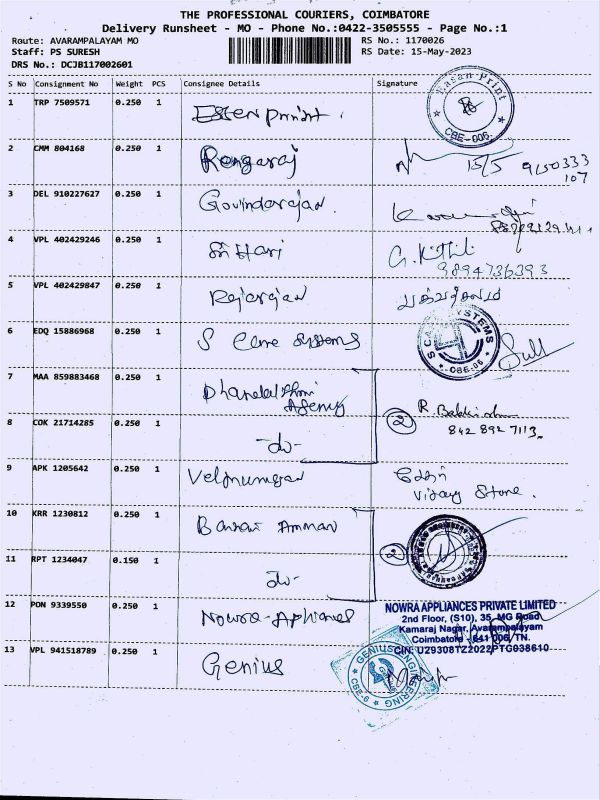 THE PROFESSIONAL COURIERS, COIMBATORE
Delivery Runsheet - MO - Phone No.:0422-3505555 - Page No.:1
Route: AVARAMPALAYAM MO
RS No.: 1170026
Staff: PS SURESH
RS Date: 15-May-2023
DRS No.: DCJB117002601
S No Consignment No Weight PCS Consignee Details Signature
1 TRP 7509571 0.250 1
Rasan Print
CBE-006
2 CMM 804168 0.250 1 Rengaraj 15/5 9150333
107
3 DEL 910227627 0.250 1 Govindarajan
4 VPL 402429246 0.250 1 Hari G.
9894736393
5 VPL 402429847 0.250 1 Rajarajan
6 EDQ 15886968 0.250 1 S Care Systems
S CARE SYSTEMS
CBE-06
7 MAA 859883468 0.250 1 Agency
2 R.
8 COK 21714285 0.250 1 -do- 842 892 7113
9 APK 1205642 0.250 1 Velmurugan
Vijay Stone.
10 KRR 1230812 0.250 1 Bannari Amman
2
11 RPT 1234047 0.150 1 -do-
12 PON 9339550 0.250 1 Nowra-Appliances
NOWRA APPLIANCES PRIVATE LIMITED
2nd Floor, (S10), 35, MG Road
Kamaraj Nagar, Avarampalayam
Coimbatore - 641 006, TN.
CIN: U29308TZ2022PTG038610
13 VPL 941518789 0.250 1 Genius
GENIUS ENGINEERING
CBE-6